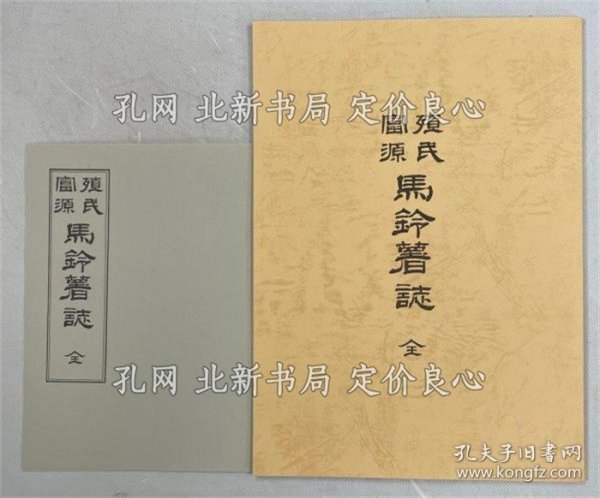 孔网 北新书局 定价良心
殖民
富源
馬鈴薯誌
全
殖民
富源
馬鈴薯誌
全
孔网 北新书局 定价良心
孔夫子旧书网
www.kongfz.com